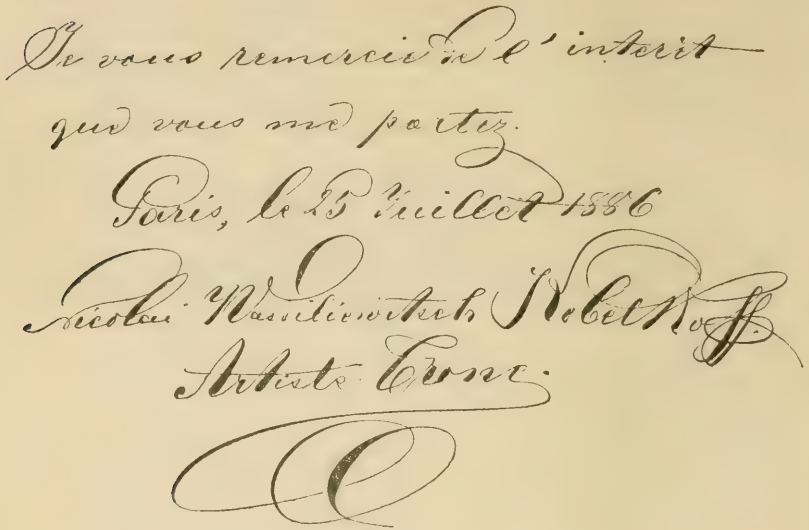 Je vous remercie de l'interit
que vous me portez.
Paris, le 25 Juillet 1886
Nicolai Wassiliewitsch Kobelkoff.
Artiste Tronc.